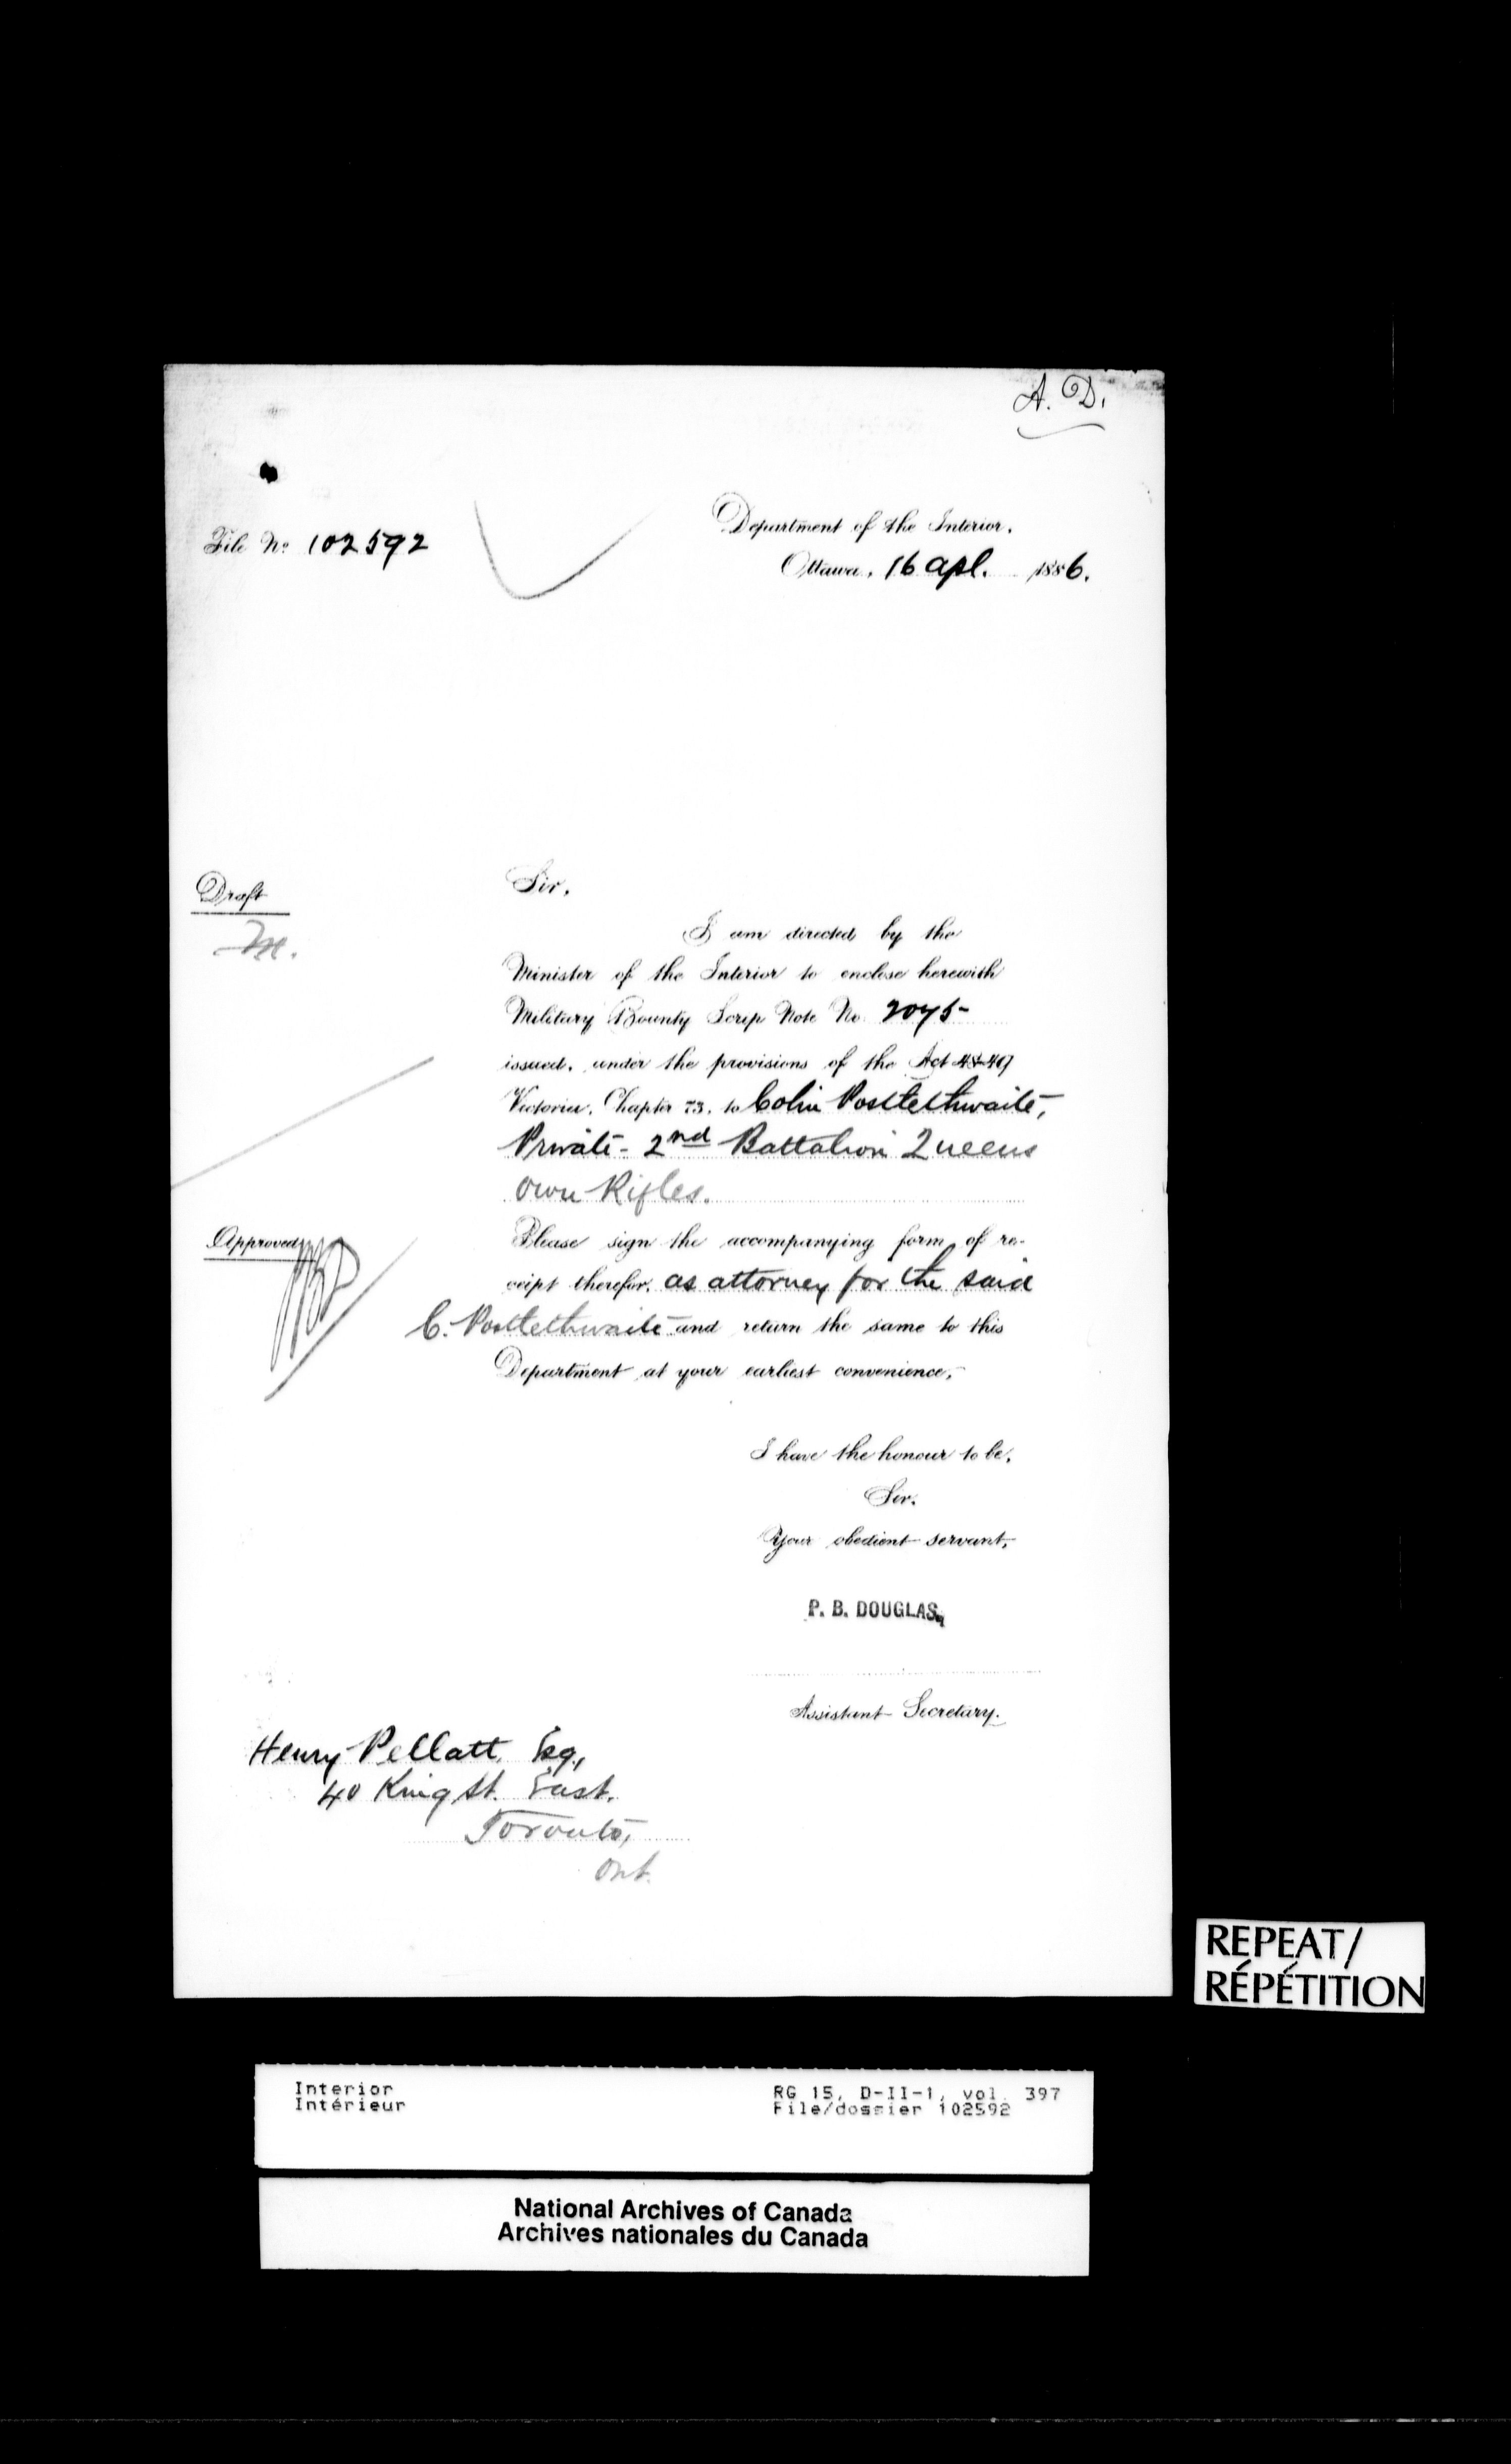 A. D.
Department of the Interior.
File No. 102592
Ottawa, 16 apl. 1886.
Draft
Sir,
I am directed by the
Minister of the Interior to enclose herewith
Military Bounty Scrip Note No. 2075
issued, under the provisions of the Act 48-49
Victoria, Chapter 73, to Colin Postlethwaite,
Private - 2nd Battalion Queens
Own Rifles.
Approved
Please sign the accompanying form of re-
ceipt therefor, as attorney for the said
C. Postlethwaite and return the same to this
Department at your earliest convenience,
I have the honour to be,
Sir,
Your obedient servant,
P. B. DOUGLAS,
Assistant Secretary.
Henry Pellatt, Esq,
40 King St. East.
Toronto,
Ont.
REPEAT/
RÉPÉTITION
Interior
Intérieur
RG 15, D-II-1, vol. 397
File/dossier 102592
National Archives of Canada
Archives nationales du Canada